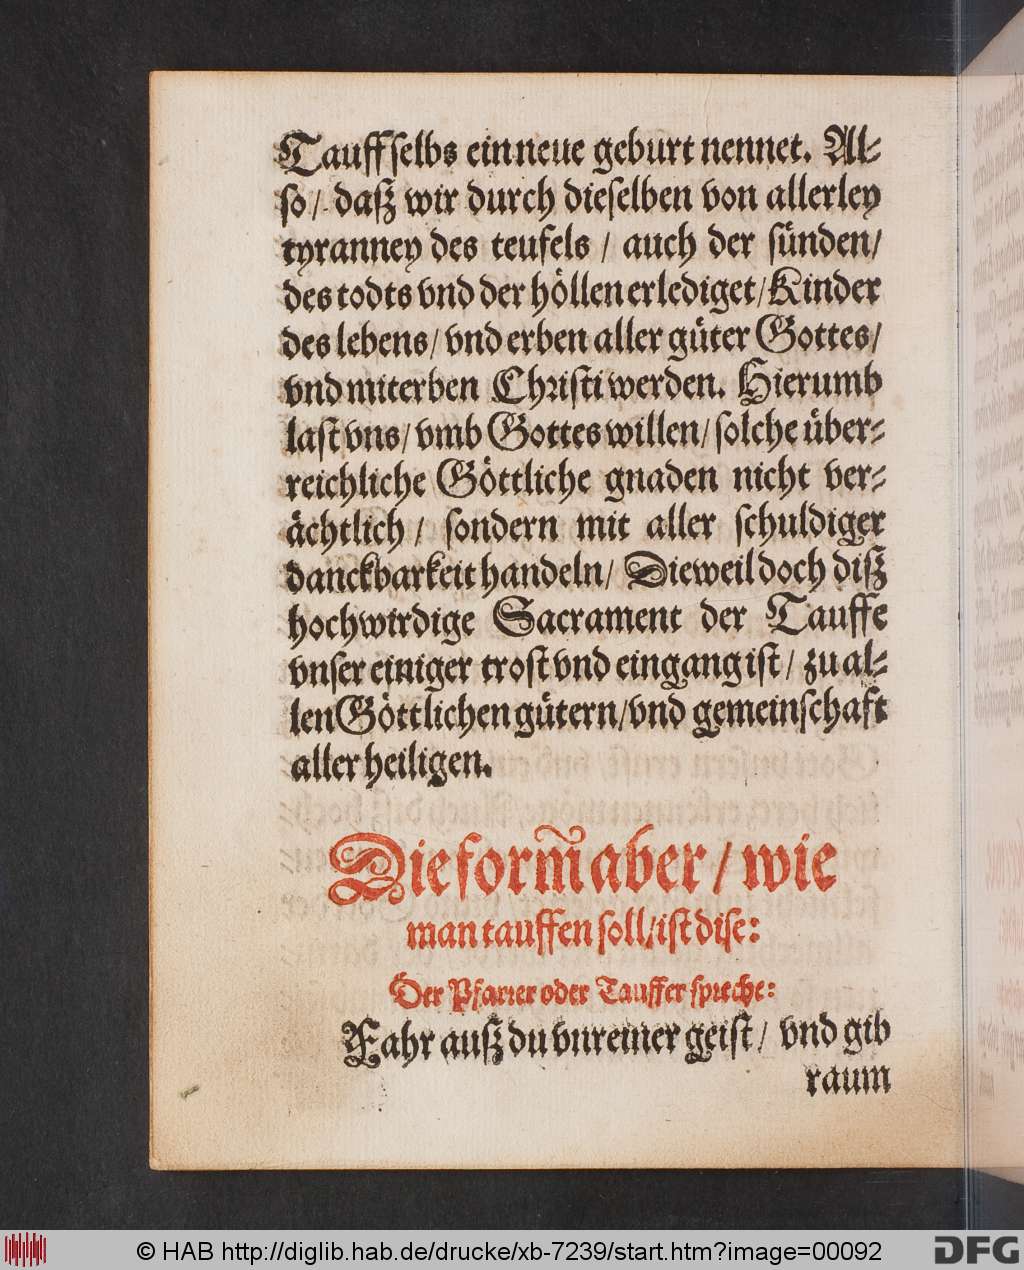 Tauff selbs ein neue geburt nennet. Al-
so / daß wir durch dieselben von allerley
tyranney des teufels / auch der sünden /
des todts vnd der höllen erlediget / Kinder
des lebens / vnd erben aller güter Gottes /
vnd miterben Christi werden. Hierumb
last vns / vmb Gottes willen / solche über-
reichliche Göttliche gnaden nicht ver-
ächtlich / sondern mit aller schuldiger
danckbarkeit handeln / Dieweil doch diß
hochwirdige Sacrament der Tauffe
vnser einiger trost vnd eingang ist / zu al-
len Göttlichen gütern / vnd gemeinschaft
aller heiligen.
Die form̃ aber / wie
man tauffen soll / ist dise:
Der Pfarrer oder Tauffer spreche:
Fahr auß du vnreiner geist / vnd gib
raum
© HAB http://diglib.hab.de/drucke/xb-7239/start.htm?image=00092
DFG